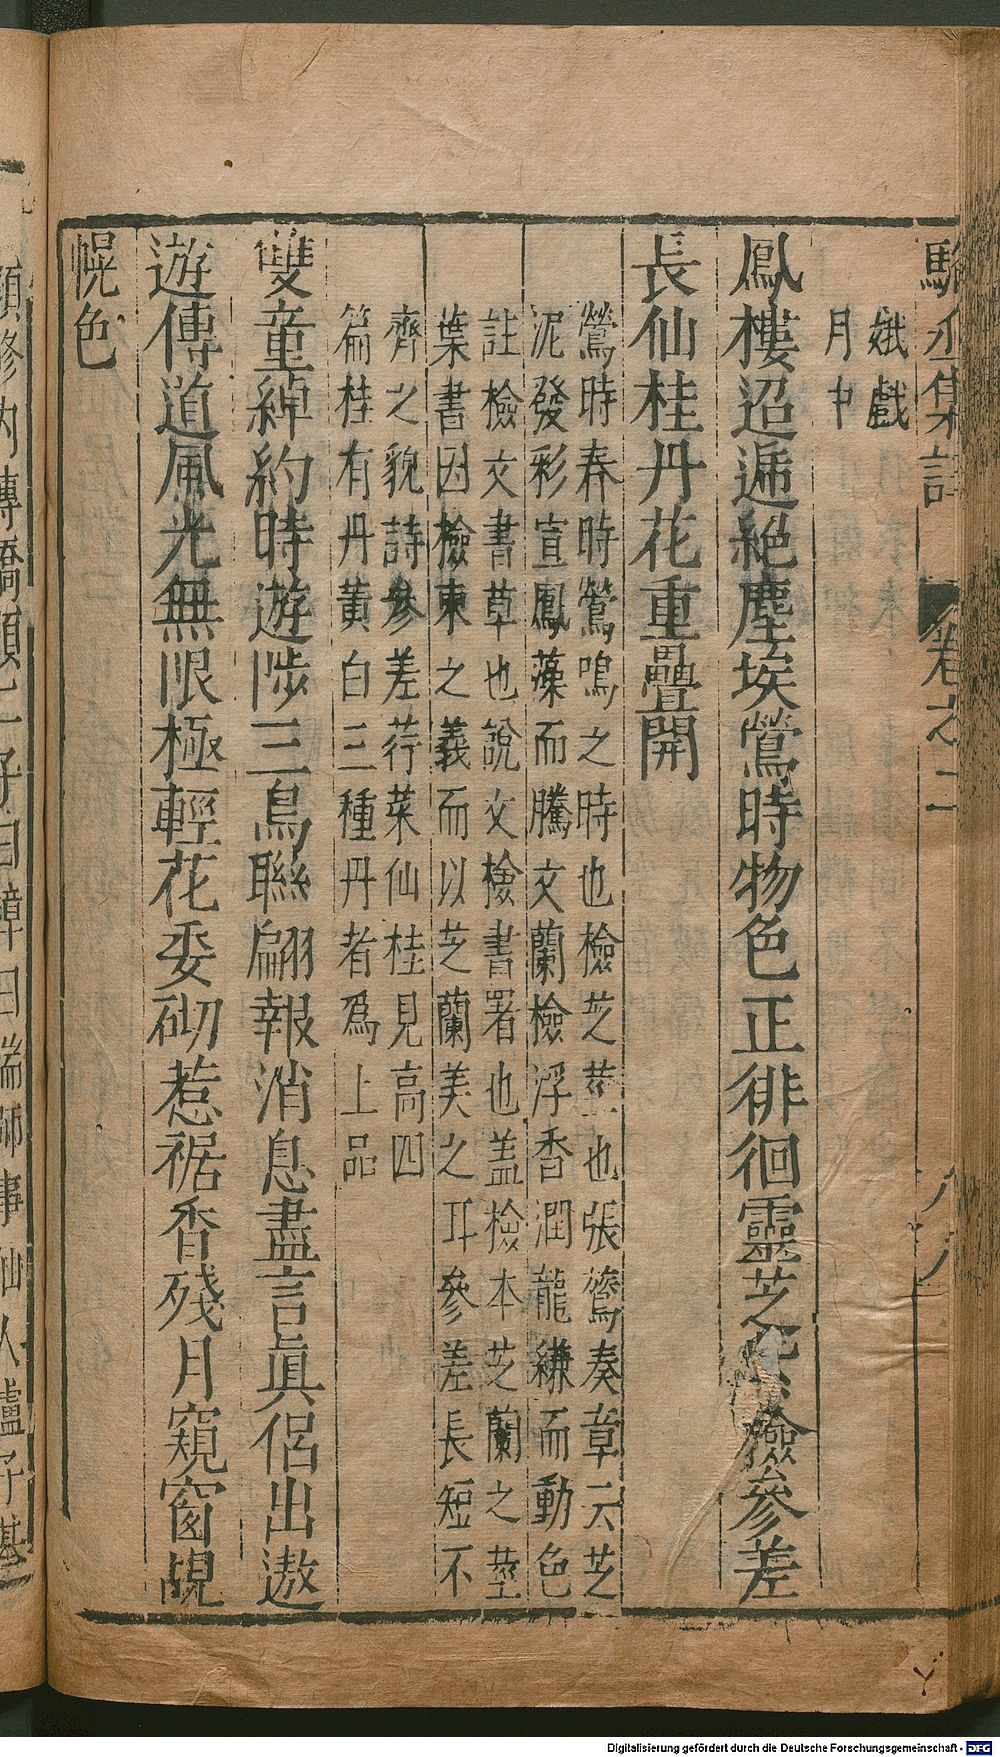 駱丞集註 卷之二
娥戲
月中
鳳樓迢遞絕塵埃鶯時物色正徘徊靈芝紫檢參差
長仙桂丹花重疊開
鶯時春時鶯鳴之時也檢芝莖也張鷟奏章云芝
泥發彩宣鳳藻而騰文蘭檢浮香潤龍縑而動色
註檢文書草也說文檢書署也盖檢本芝蘭之莖
葉書因檢東之義而以芝蘭美之耳參差長短不
齊之貌詩參差荇菜仙桂見高四
篇桂有丹黃白三種丹者爲上品
雙童綽約時遊陟三鳥聯翩報消息盡言眞侶出遨
遊傳道風光無限極輕花委砌惹裾香殘月窺窗覘
幌色
Digitalisierung gefördert durch die Deutsche Forschungsgemeinschaft - DFG